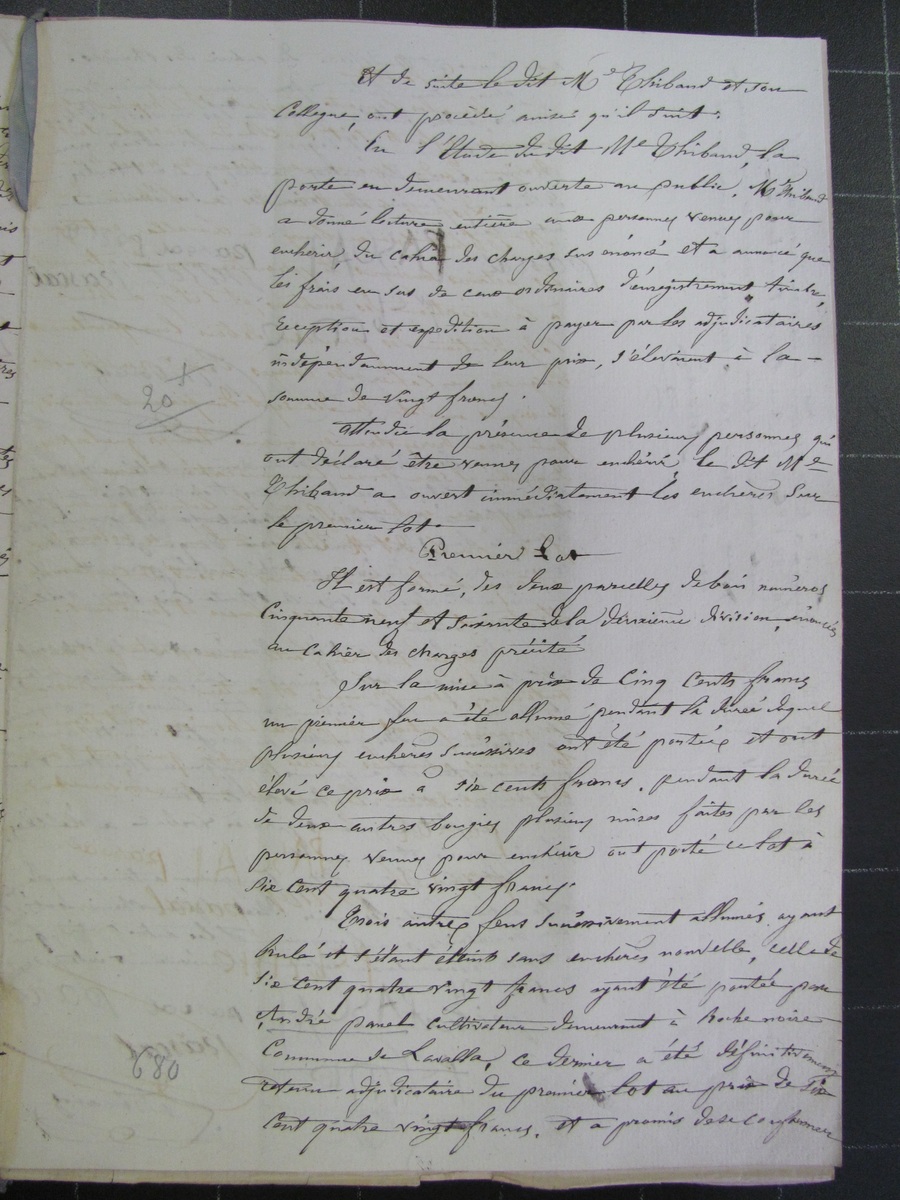 Et de suite le dit Me Thibaud et son
Collegue, ont procédé ainsi qu'il suit.
En l'Etude du dit Me Thibaud, la
porte en demeurant ouverte au public, Me Thibaud
a donné lecture entière aux personnes venues pour
enchérir, du cahier des charges sus énoncé et a annoncé que
les frais en sus de ceux ordinaires d'enregistrement, timbre,
réception et expédition à payer par les adjudicataires
indépendamment de leur prix, s'élevaient à la
somme de vingt francs.
20
Attendu la présence de plusieurs personnes qui
ont déclaré être venues pour enchérir, le dit Me
Thibaud a ouvert immédiatement les enchères sur
le premier lot.
Premier Lot
Il est formé, des deux parcelles de bois numéros
Cinquante neuf et soixante de la division, énoncées
au Cahier des charges précité
Sur la mise à prix de Cinq Cents francs
un premier feu a été allumé pendant la durée duquel
plusieurs enchères successives ont été portées et ont
élevé ce prix à six cents francs. pendant la durée
de deux autres bougies plusieurs mises faites par les
personnes venues pour enchérir ont porté ce lot à
six cent quatre vingt francs.
Trois autres feux successivement allumés ayant
brulé et s'étant éteints sans enchères nouvelle, celle de
six cent quatre vingt francs ayant été portée par
André cultivateur demeurant à Roche noire
Commune de Lavalla, ce dernier a été définitivement
retenu adjudicataire du premier lot au prix de six
Cent quatre vingt francs, et a promis de se conformer
680
pascal